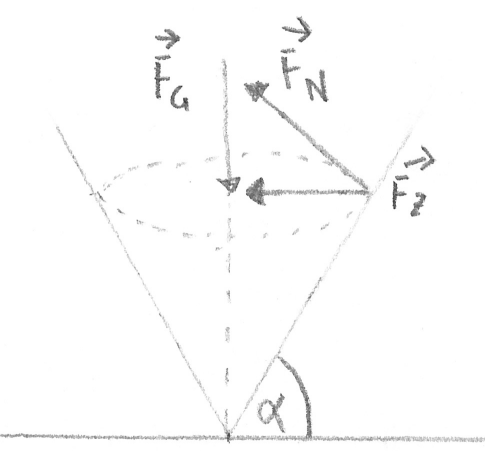 F_G F_N
F_Z
α